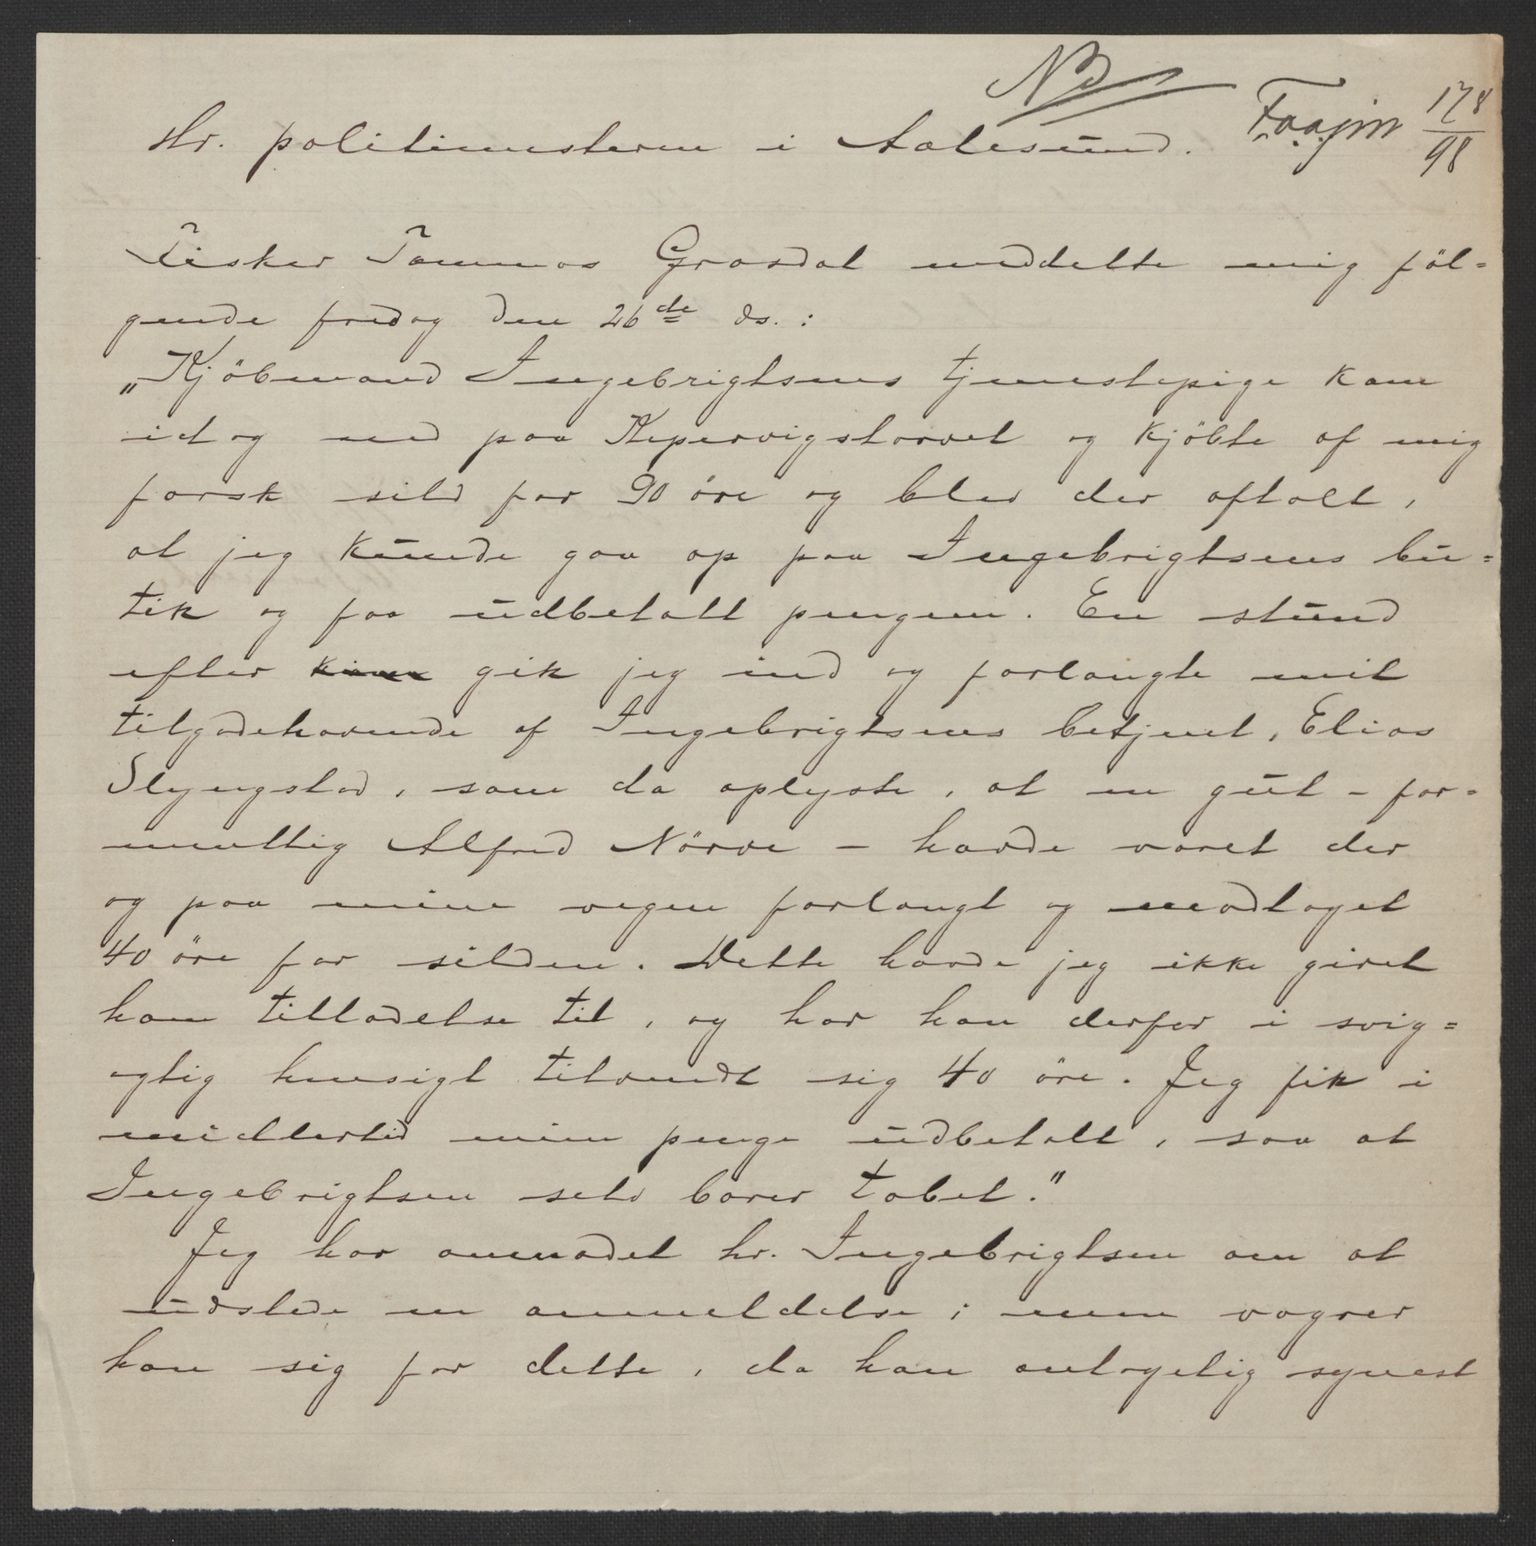 Nd
178
98
Hr. politimesteren i Aalesund.
Fisker Tommas Grasdal meddelte mig föl=
gende fredag den 26de ds.:
„Kjöbmand Ingebrigtsens tjenestepige kom
idag ned paa Kipervigstorvet og kjöbte af mig
fersk sild for 90 öre og blev der aftalt,
at jeg kunde gaa op paa Ingebrigtsens bu=
tik og faa udbetalt pengene. En stund
efter gik jeg ind og forlangte mit
tilgodehavende af Ingebrigtsens betjent, Elias
Slyngstad, som da oplyste, at en gut – for=
mentlig Alfred Nörve – havde været der
og paa mine vegne forlangt og modtaget
40 öre for silden. Dette havde jeg ikke givet
ham tilladelse til, og har han derfor i svig=
agtig hensigt tilvendt sig 40 öre. Jeg fik i
midlertid mine penge udbetalt, saa at
Ingebrigtsen selv bærer tabet."
Jeg har anmodet hr. Ingebrigtsen om at
udstede en anmeldelse; men vægrer
han sig for dette, da han antagelig synest